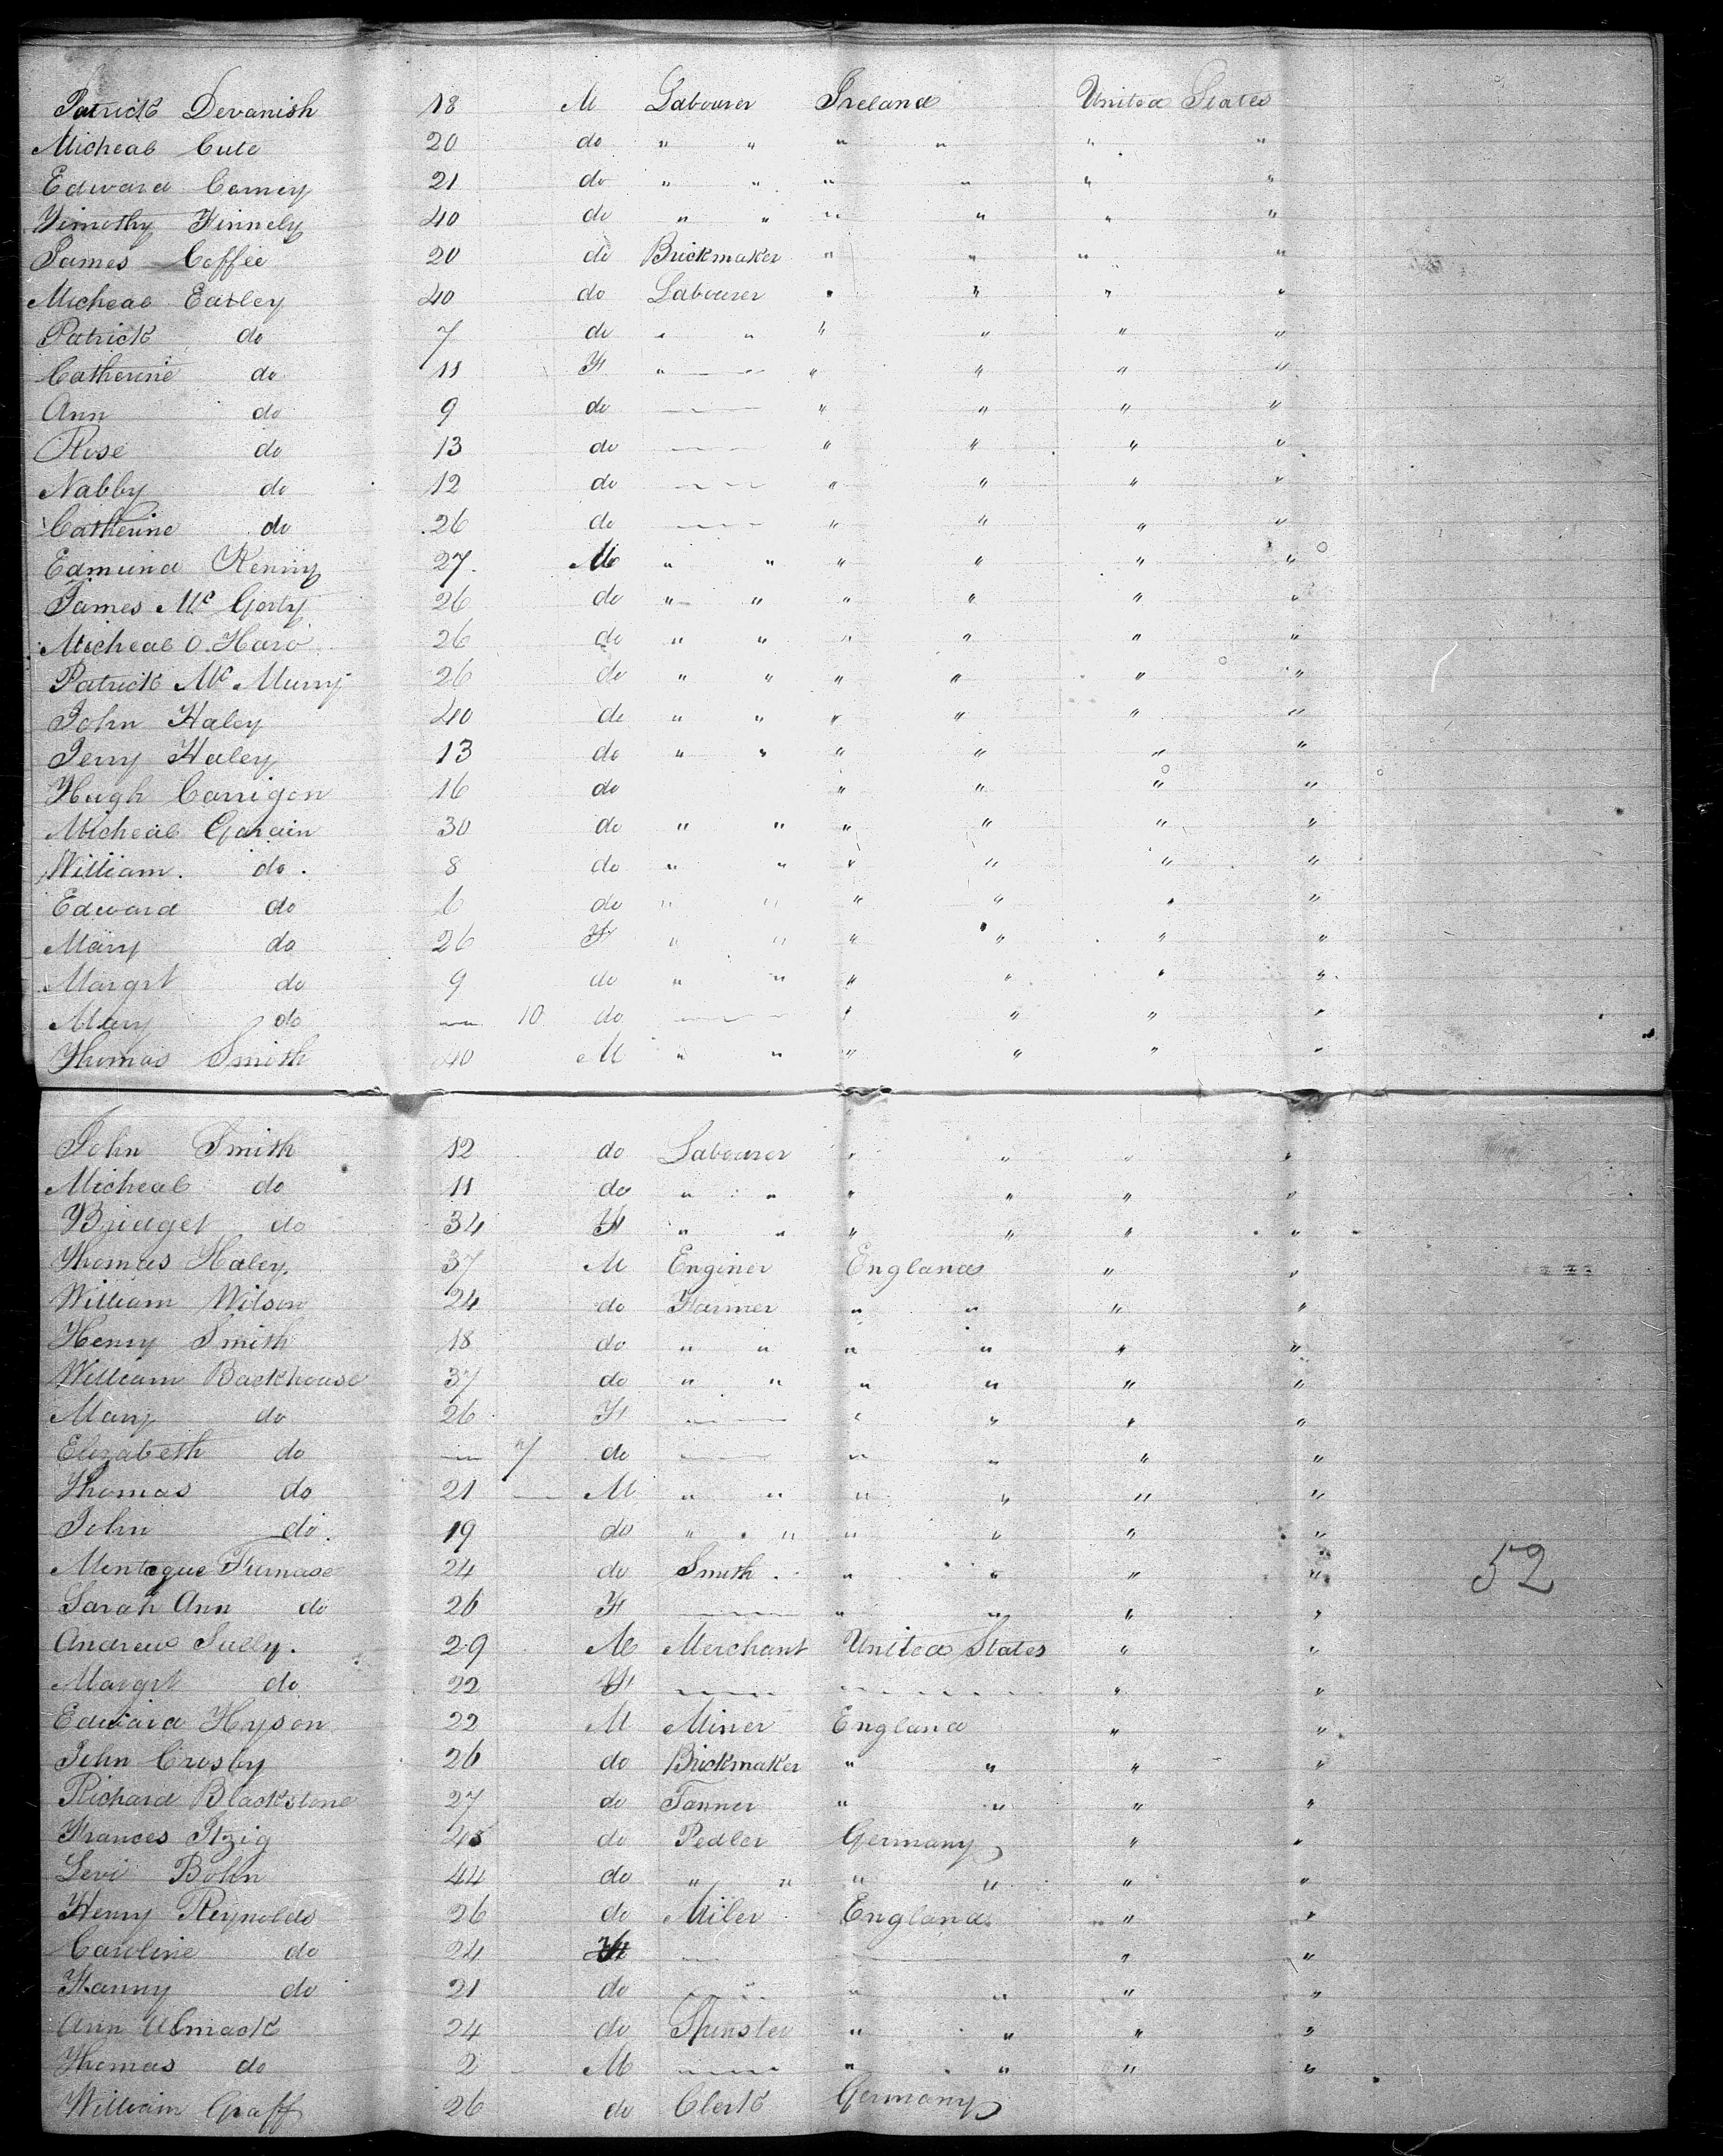 Patrick Devanish 18 M Labourer Ireland United States
Micheal Cute 20 do " " " " " "
Edward Carney 21 do " " " " " "
Timothy Finnely 40 do " " " " " "
James Coffee 20 do Brickmaker " " " "
Micheal Earley 40 do Labourer " " " "
Patrick do 7 do " " " " " "
Catherine do 11 F " — " " " "
Ann do 9 do — " " " "
Rose do 13 do — " " " "
Nabby do 12 do — " " " "
Catherine do 26 do — " " " "
Edmund Kenny 27 M " " " " " "
James Mc Gorty 26 do " " " " " "
Micheal O Haro 26 do " " " " " "
Patrick Mc Murry 26 do " " " " " "
John Haley 40 do " " " " " "
Jerry Haley 13 do " " " " " "
Hugh Carrigon 16 do " " " "
Micheal Garain 30 do " " " " " "
William do 8 do " " " " " "
Edward do 6 do " " " " " "
Mary do 26 F " " " " " "
Margrt do 9 do " " " " " "
Mary do — 10 do — " " " "
Thomas Smith 40 M " " " " " "
John Smith 12 do Labourer " " " "
Micheal do 11 do " " " " " "
Bridget do 34 F " " " " " "
Thomas Haley 37 M Enginer England " "
William Wilson 24 do Farmer " " " "
Henry Smith 18 do " " " " " "
William Backhouse 37 do " " " " " "
Mary do 26 F — " " " "
Elizabeth do — 7 do — " " " "
Thomas do 21 — M " " " " " "
John do 19 do " " " " " "
Montague Furnase 24 do Smith " " " "
52
Sarah Ann do 26 F — " " " "
Andrew Sully 29 M Merchant United States " "
Margrt do 22 F — — " "
Edward Hyson 22 M Miner England " "
John Crosby 26 do Brickmaker " " " "
Richard Blackstone 27 do Tanner " " " "
Frances Itzig 45 do Pedler Germany " "
Levi Bohn 44 do " " " " " "
Henry Reynolds 26 do Miler England " "
Caroline do 24 F — — " "
Fanny do 21 do — " " " "
Ann Almack 24 do Spinster " " " "
Thomas do 2 M — " " " "
William Graff 26 do Clerk Germany